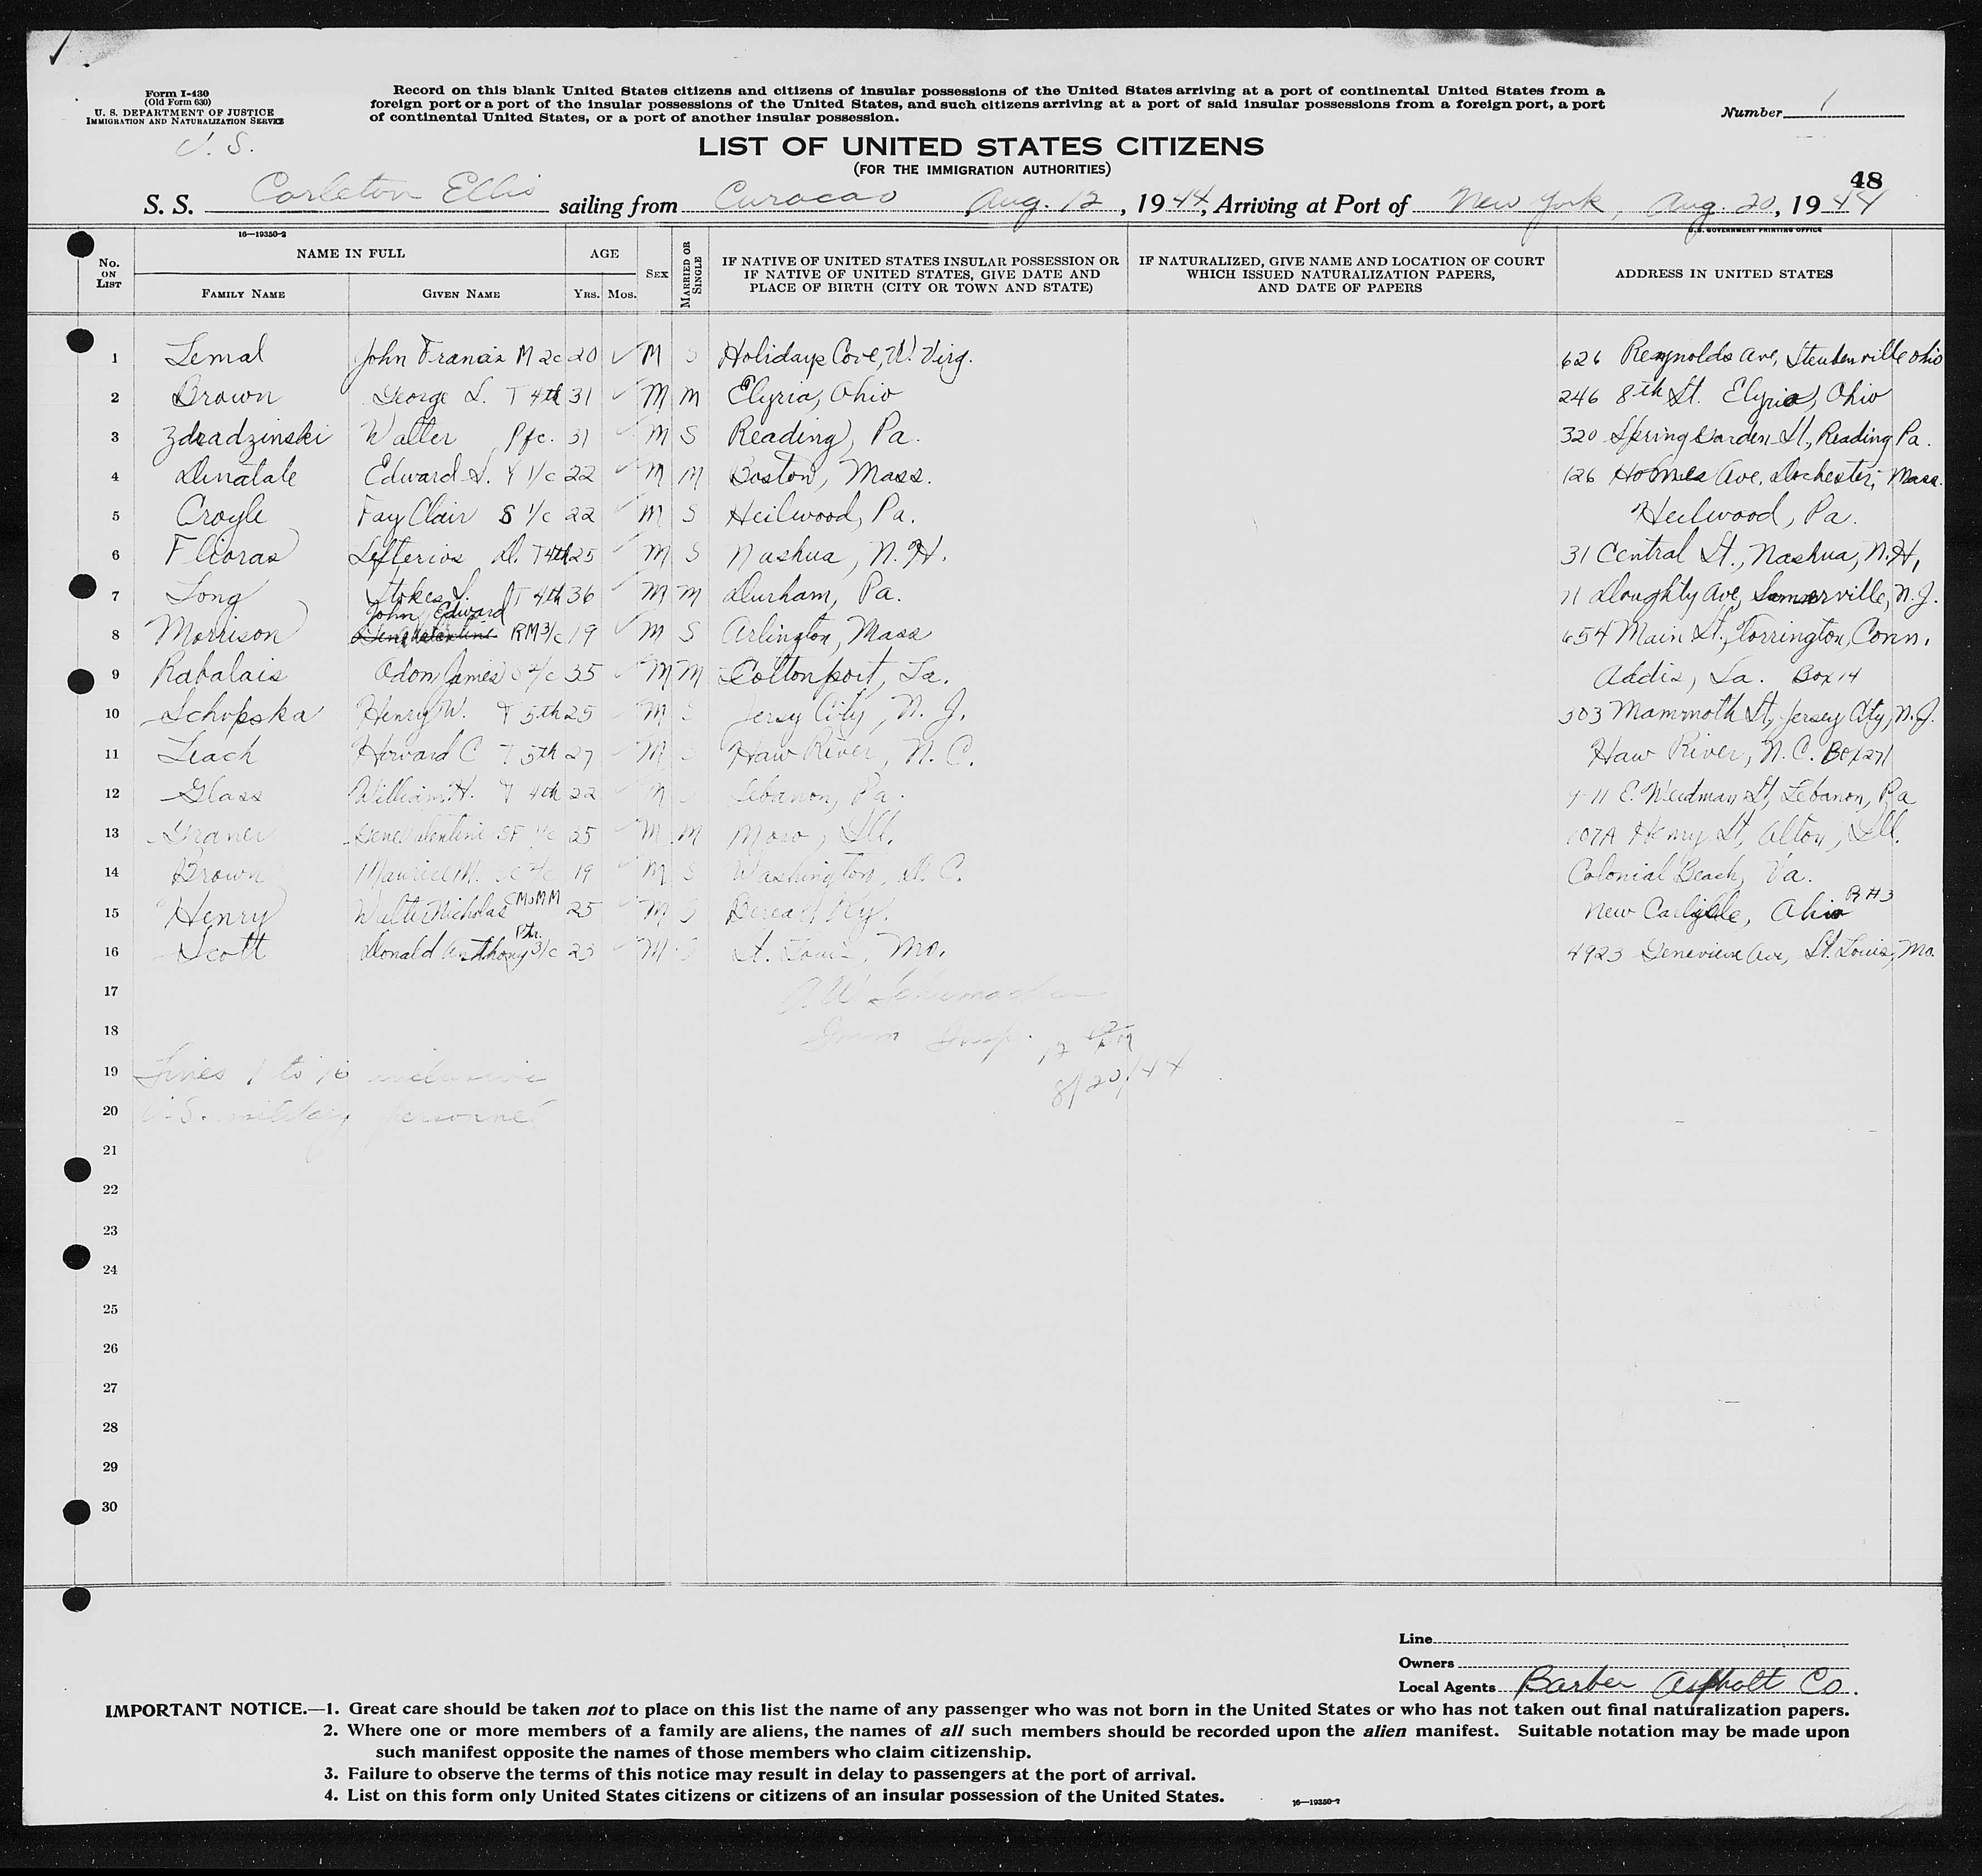 Form I-430
(Old Form 630)
U. S. DEPARTMENT OF JUSTICE
IMMIGRATION AND NATURALIZATION SERVICE
U. S.
Record on this blank United States citizens and citizens of insular possessions of the United States arriving at a port of continental United States from a
foreign port or a port of the insular possessions of the United States, and such citizens arriving at a port of said insular possessions from a foreign port, a port
of continental United States, or a port of another insular possession.
Number 1
LIST OF UNITED STATES CITIZENS
(FOR THE IMMIGRATION AUTHORITIES)
48
S. S. Carleton Ellis sailing from Curacao, Aug. 12, 1944, Arriving at Port of New York, Aug. 20, 1944
16—19350-2
U.S. GOVERNMENT PRINTING OFFICE
No. ON LIST
NAME IN FULL
FAMILY NAME
GIVEN NAME
AGE
YRS. MOS.
SEX
MARRIED OR SINGLE
IF NATIVE OF UNITED STATES INSULAR POSSESSION OR
IF NATIVE OF UNITED STATES, GIVE DATE AND
PLACE OF BIRTH (CITY OR TOWN AND STATE)
IF NATURALIZED, GIVE NAME AND LOCATION OF COURT
WHICH ISSUED NATURALIZATION PAPERS,
AND DATE OF PAPERS
ADDRESS IN UNITED STATES
1 Lemal John Francis M 2c 20 ✓ M S Holidays Cove, W. Virg. 626 Reynolds Ave, Steubenville Ohio
2 Brown George L. T 4th 31 ✓ M M Elyria, Ohio 246 8th St. Elyria, Ohio
3 Zdradzinski Walter Pfc. 31 ✓ M S Reading, Pa. 320 Spring Garden St., Reading Pa.
4 Dinatale Edward S. Y 1/c 22 ✓ M M Boston, Mass. 126 Holmes Ave. Dochester, Mass.
5 Croyle Fay Clair S 1/c 22 ✓ M S Heilwood, Pa. Heilwood, Pa.
6 Flioras Lefterios D. T 4th 25 ✓ M S Nashua, N.H. 31 Central St., Nashua, N.H.
7 Long Stokes S. T 4th 36 ✓ M M Durham, Pa. 11 Doughty Ave, Somerville, N.J.
John Edward
8 Morrison Gene Valentine RM 3/c 19 ✓ M S Arlington, Mass 654 Main St., Torrington, Conn.
9 Rabalais Odom James S 2/c 35 ✓ M M Cottonport, La. Addis, La. Box 14
10 Schopska Henry W. T 5th 25 ✓ M S Jersy City, N. J. 303 Mammoth St, Jersey City, N.J.
11 Leach Howard C T 5th 27 ✓ M S Haw River, N. C. Haw River, N. C. Box 271
12 Glass William H. T 4th 22 ✓ M S Lebanon, Pa. E. Weidman St, Lebanon, Pa
13 Graner Gene Valentine SF 1/c 25 ✓ M M Moro, Ill. 107A Henry St, Alton, Ill.
14 Brown Maurice M. 19 ✓ M S Washington, D. C. Colonial Beach, Va.
15 Henry Walter Nicholas MoMM 25 M S Berea, Ky. New Carlyle, Ohio R#3
16 Scott Donald Anthony Ptr. 3/c 23 ✓ M S St. Louis, Mo. 4923 Genevieve Ave, St. Louis, Mo.
17 A W Schumacher
18 Imm Insp.
19 Lines 1 to 16 inclusive 8/20/44
20 U.S. military personnel
21
22
23
24
25
26
27
28
29
30
Line
Owners
Local Agents Barber Asphalt Co.
IMPORTANT NOTICE.—1. Great care should be taken not to place on this list the name of any passenger who was not born in the United States or who has not taken out final naturalization papers.
2. Where one or more members of a family are aliens, the names of all such members should be recorded upon the alien manifest. Suitable notation may be made upon
such manifest opposite the names of those members who claim citizenship.
3. Failure to observe the terms of this notice may result in delay to passengers at the port of arrival.
4. List on this form only United States citizens or citizens of an insular possession of the United States.
16—19350-2